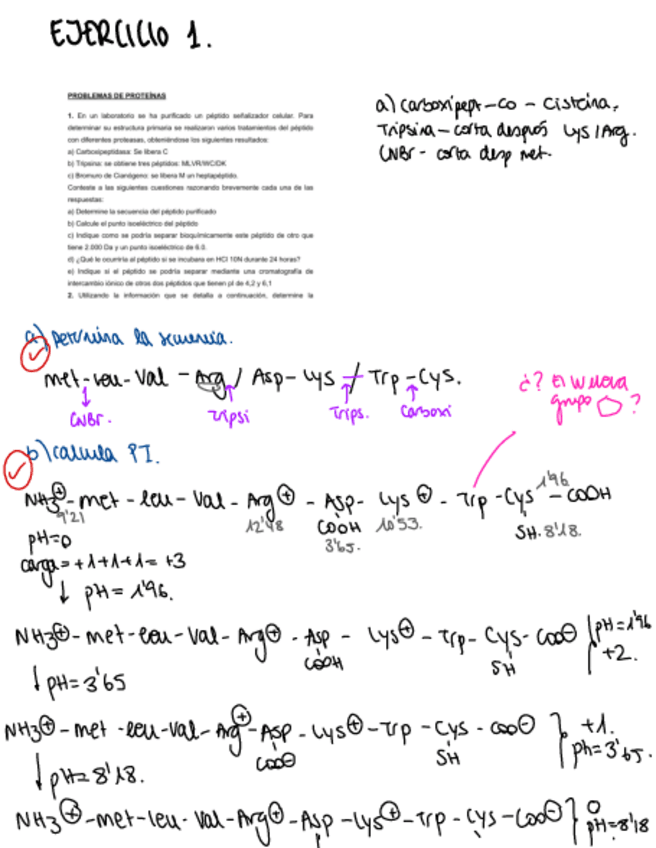 EJERCICIO 1.
PROBLEMAS DE PROTEÍNAS
1. En un laboratorio se ha purificado un péptido señalizador celular. Para
determinar su estructura primaria se realizaron varios tratamientos del péptido
con diferentes proteasas, obteniéndose los siguientes resultados:
a) Carboxipeptidasa: Se libera C
b) Tripsina: se obtiene tres péptidos: MLVR/WC/DK
c) Bromuro de Cianógeno: se libera M un heptapéptido.
Conteste a las siguientes cuestiones razonando brevemente cada una de las
respuestas:
a) Determine la secuencia del péptido purificado
b) Calcule el punto isoeléctrico del péptido
c) Indique como se podría separar bioquímicamente este péptido de otro que
tiene 2.000 Da y un punto isoeléctrico de 6.0.
d) ¿Qué le ocurriría al péptido si se incubara en HCl 10N durante 24 horas?
e) Indique si el péptido se podría separar mediante una cromatografía de
intercambio iónico de otros dos péptidos que tienen pI de 4,2 y 6,1
2. Utilizando la información que se detalla a continuación, determine la
a) carboxipept-co - cisteína,
Tripsina - corta después Lys/Arg.
CNBr - corta desp met.
a) Determina la secuencia.
met-leu-Val - Arg / Asp-Lys / Trp-Cys.
CNBr. Tripsi Trips. Carboxi
¿? El W lleva
grupo ?
b) calcula PI.
NH3⊕-met-leu-Val-Arg⊕ - Asp- Lys⊕ - Trp -Cys - COOH
9'21 12'48 COOH 10'53. 1'96
3'65. SH. 8'18.
pH=0
carga=+1+1+1= +3
↓ pH= 1'96.
NH3⊕-met-leu-Val-Arg⊕ - Asp - Lys⊕ - Trp- Cys- COO⊖ pH=1'96
COOH SH +2.
↓ pH=3'65
NH3⊕-met-leu-Val-Arg⊕-Asp-Lys⊕-Trp-Cys-COO⊖ } +1.
COO⊖ SH ph=3'65.
↓ pH=8'18.
NH3⊕-met-leu-Val-Arg⊕-Asp-Lys⊕-Trp-Cys-COO⊖ } 0
pH=8'18